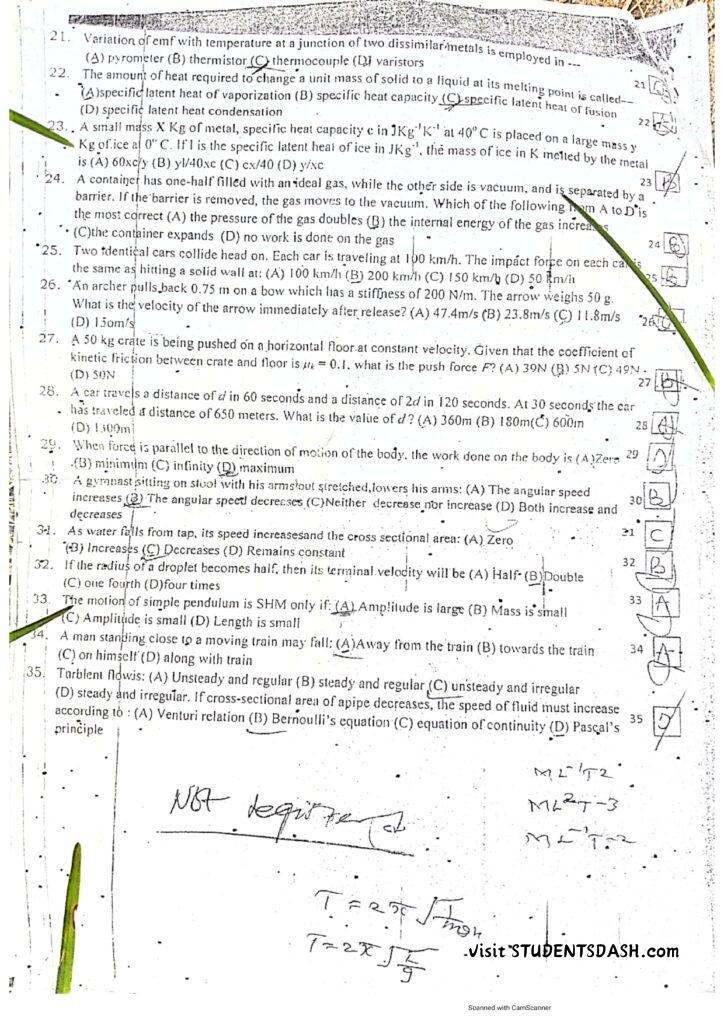 21. Variation of emf with temperature at a junction of two dissimilar metals is employed in ---
(A) pyrometer (B) thermistor (C) thermocouple (D) varistors
21
22. The amount of heat required to change a unit mass of solid to a liquid at its melting point is called--
(A)specific latent heat of vaporization (B) specific heat capacity (C) specific latent heat of fusion
(D) specific latent heat condensation
22
23. A small mass X Kg of metal, specific heat capacity c in JKg⁻¹K⁻¹ at 40°C is placed on a large mass y
Kg of ice at 0°C. If l is the specific latent heat of ice in JKg⁻¹, the mass of ice in K melted by the metal
is (A) 60xc/y (B) yl/40xc (C) cx/40 (D) y/xc
23 B
24. A container has one-half filled with an ideal gas, while the other side is vacuum, and is separated by a
barrier. If the barrier is removed, the gas moves to the vacuum. Which of the following from A to D is
the most correct (A) the pressure of the gas doubles (B) the internal energy of the gas increases
(C)the container expands (D) no work is done on the gas
24 B
25. Two identical cars collide head on. Each car is traveling at 100 km/h. The impact force on each car is
the same as hitting a solid wall at: (A) 100 km/h (B) 200 km/h (C) 150 km/h (D) 50 km/h
25 B
26. An archer pulls back 0.75 m on a bow which has a stiffness of 200 N/m. The arrow weighs 50 g.
What is the velocity of the arrow immediately after release? (A) 47.4m/s (B) 23.8m/s (C) 11.8m/s
(D) 150m/s
26 C
27. A 50 kg crate is being pushed on a horizontal floor at constant velocity. Given that the coefficient of
kinetic friction between crate and floor is μₖ = 0.1. what is the push force F? (A) 39N (B) 5N (C) 49N
(D) 50N
27 B
28. A car travels a distance of d in 60 seconds and a distance of 2d in 120 seconds. At 30 seconds the car
has traveled a distance of 650 meters. What is the value of d? (A) 360m (B) 180m(C) 600m
(D) 1300m
28 A
29. When force is parallel to the direction of motion of the body, the work done on the body is (A)Zero
(B) minimum (C) infinity (D) maximum
29 D
30. A gymnast sitting on stool with his arms out stretched,lowers his arms: (A) The angular speed
increases (B) The angular speed decreases (C)Neither decrease nor increase (D) Both increase and
decreases
30 B
31. As water falls from tap, its speed increasesand the cross sectional area: (A) Zero
(B) Increases (C) Decreases (D) Remains constant
31 C
32. If the radius of a droplet becomes half, then its terminal velocity will be (A) Half (B) Double
(C) one fourth (D)four times
32 B
33. The motion of simple pendulum is SHM only if: (A) Amplitude is large (B) Mass is small
(C) Amplitude is small (D) Length is small
33 A
34. A man standing close to a moving train may fall: (A)Away from the train (B) towards the train
(C) on himself (D) along with train
34 A
35. Turblent flowis: (A) Unsteady and regular (B) steady and regular (C) unsteady and irregular
(D) steady and irregular. If cross-sectional area of apipe decreases, the speed of fluid must increase
according to : (A) Venturi relation (B) Bernoulli's equation (C) equation of continuity (D) Pascal's
principle
35 D
ML⁻¹T2
ML²T-3
ML⁻¹T-2
Not registered
T = 2π√
T=2π√L/g
.visit STUDENTSDASH.com
Scanned with CamScanner